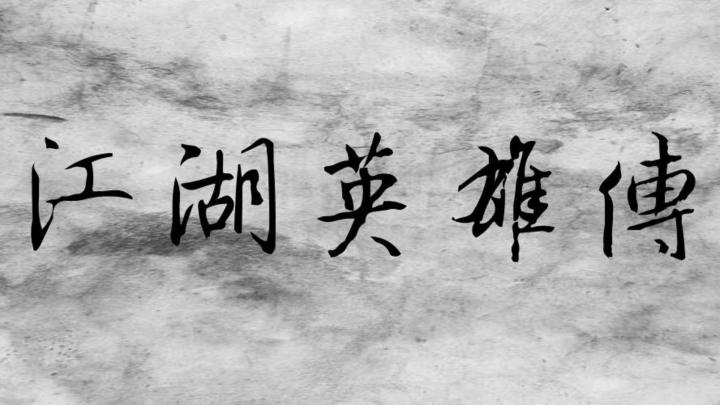 江湖英雄傳